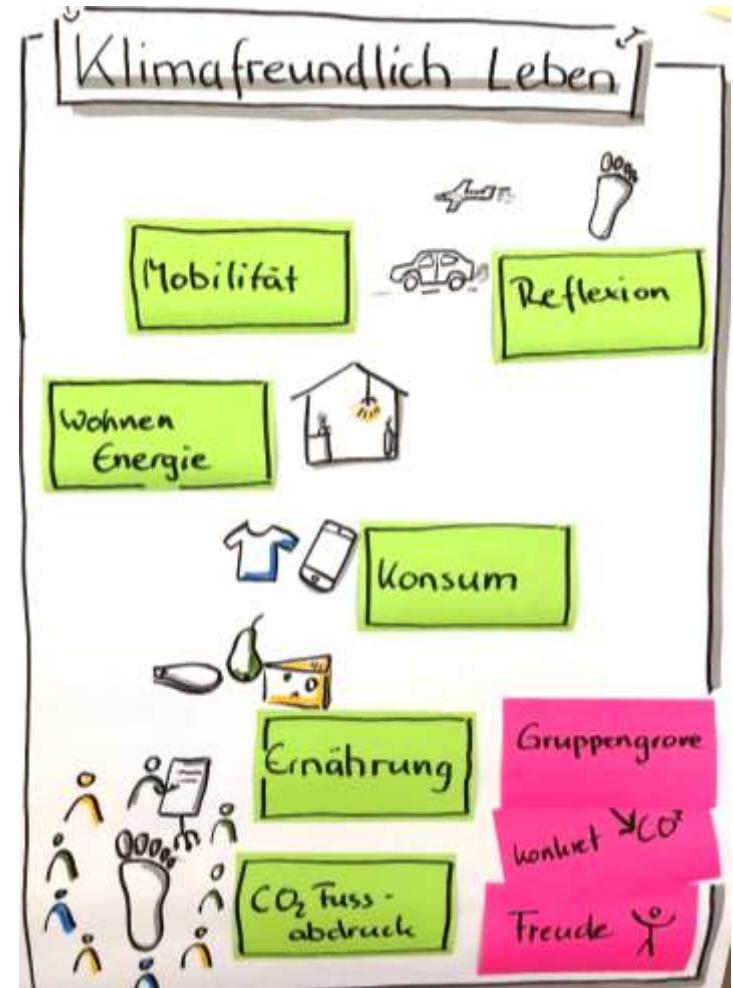 Klimafreundlich Leben
Mobilität
Reflexion
Wohnen
Energie
Konsum
Ernährung
Gruppengrove
konkret ↘CO²
CO₂ Fuss-
abdruck
Freude